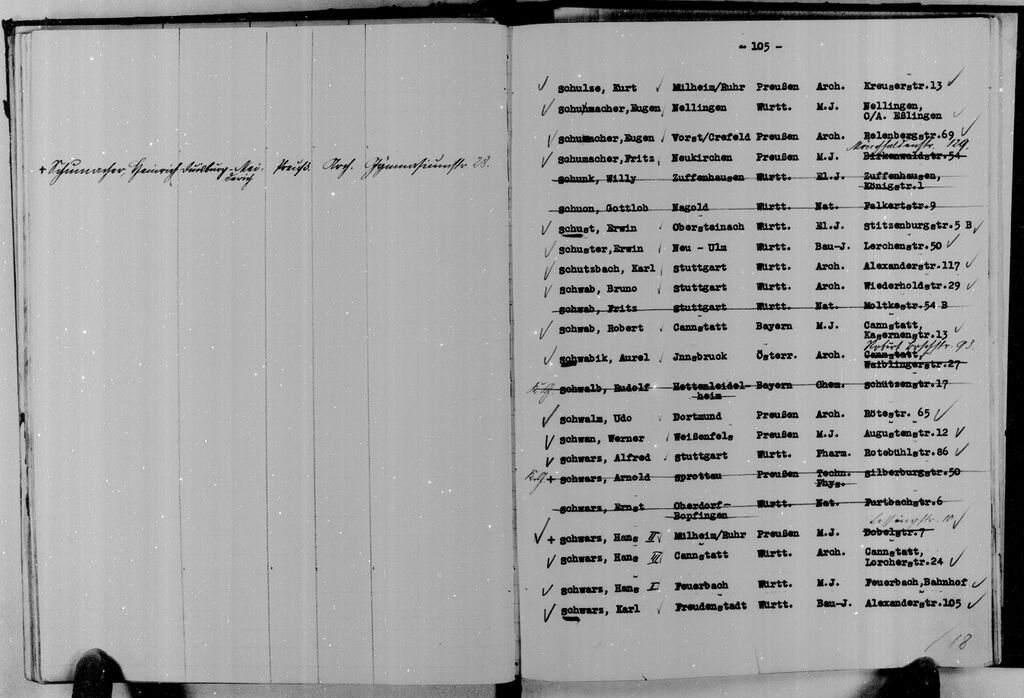 + Schumacher, Heinrich Duisburg-Mei- Preuß. Arch. Gymnasiumstr. 28.
derich
- 105 -
✓ schulze, Kurt Milheim/Ruhr Preußen Arch. Kreuserstr.13 ✓
✓ schuhmacher,Eugen Nellingen Württ. M.J. Nellingen,
O/A. Eßlingen ✓
✓ schumacher,Eugen Vorst/Crefeld Preußen Arch. Relenbergstr.69 ✓
Mönchhaldenstr. 129.
✓ schumacher,Fritz Neukirchen Preußen M.J. Birkenwaldstr.54
schunk, Willy Zuffenhausen Württ. El.J. Zuffenhausen,
Königstr.1
schuon, Gottlob Nagold Württ. Nat. Falkertstr.9
✓ schust, Erwin Obersteinach Württ. El.J. stitzenburgstr.5 B ✓
✓ schuster,Erwin Neu - Ulm Württ. Bau-J. Lerchenstr.50 ✓
✓ schutzbach, Karl stuttgart Württ. Arch. Alexanderstr.117 ✓
✓ schwab, Bruno stuttgart Württ. Arch. Wiederholdstr.29 ✓
schwab, Fritz stuttgart Württ. Nat. Moltkestr.54 B
✓ schwab, Robert Cannstatt Bayern M.J. Cannstatt, ✓
Kasernenstr.13
Robert Boschstr. 93.
✓ schwabik, Aurel Jnnsbruck Österr. Arch. Cannstatt,
Waiblingerstr.27
schwalb, Rudolf Hettenleidel- Bayern Chem. schützenstr.17
heim
✓ schwalm, Udo Dortmund Preußen Arch. Rötestr. 65 ✓
✓ schwan, Werner Weißenfels Preußen M.J. Augustenstr.12 ✓
✓ schwarz, Alfred stuttgart Württ. Pharm. Rotebühlstr.86 ✓
+ schwarz, Arnold sprottau Preußen Techn. silberburgstr.50
Phys.
schwarz, Ernst Oberdorf- Württ. Nat. Furtbachstr.6
Bopfingen
Lessingstr. 10 ✓
✓ + schwarz, Hans II Milheim/Ruhr Preußen M.J. Dobelstr.7
✓ schwarz, Hans III Cannstatt Württ. Arch. Cannstatt,
Lorcherstr.24 ✓
✓ schwarz, Hans I Feuerbach Württ. M.J. Feuerbach,Bahnhof ✓
✓ schwarz, Karl Freudenstadt Württ. Bau-J. Alexanderstr.105 ✓
/18